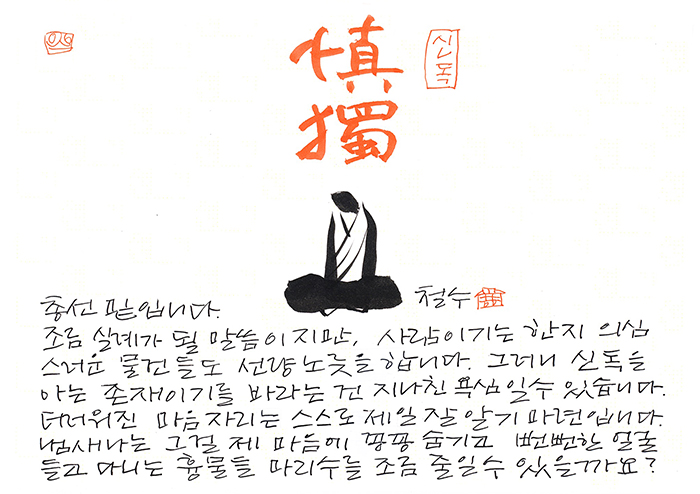 愼
獨
신독
총선 밑입니다.
철수
조금 실례가 될 말씀이지만, 사람이기는 한지 의심
스러운 물건들도 선량 노릇을 합니다. 그러니 신독을
아는 존재이기를 바라는 건 지나친 욕심일 수 있습니다.
더러워진 마음자리는 스스로 제일 잘 알기 마련입니다.
냄새나는 그걸 제 마음에 꽁꽁 숨기고 뻔뻔한 얼굴
들고 다니는 흉물들 마리수를 조금 줄일 수 있을까요?